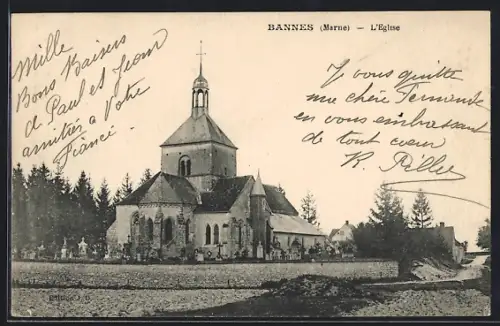 BANNES (Marne) — L'Eglise
Mille
Bons Baisers
de Paul et Jean
amitiés a Votre
Fiancé.
Je vous quitte
ma chère Fernande
en vous embrassant
de tout coeur
Edition J. B.